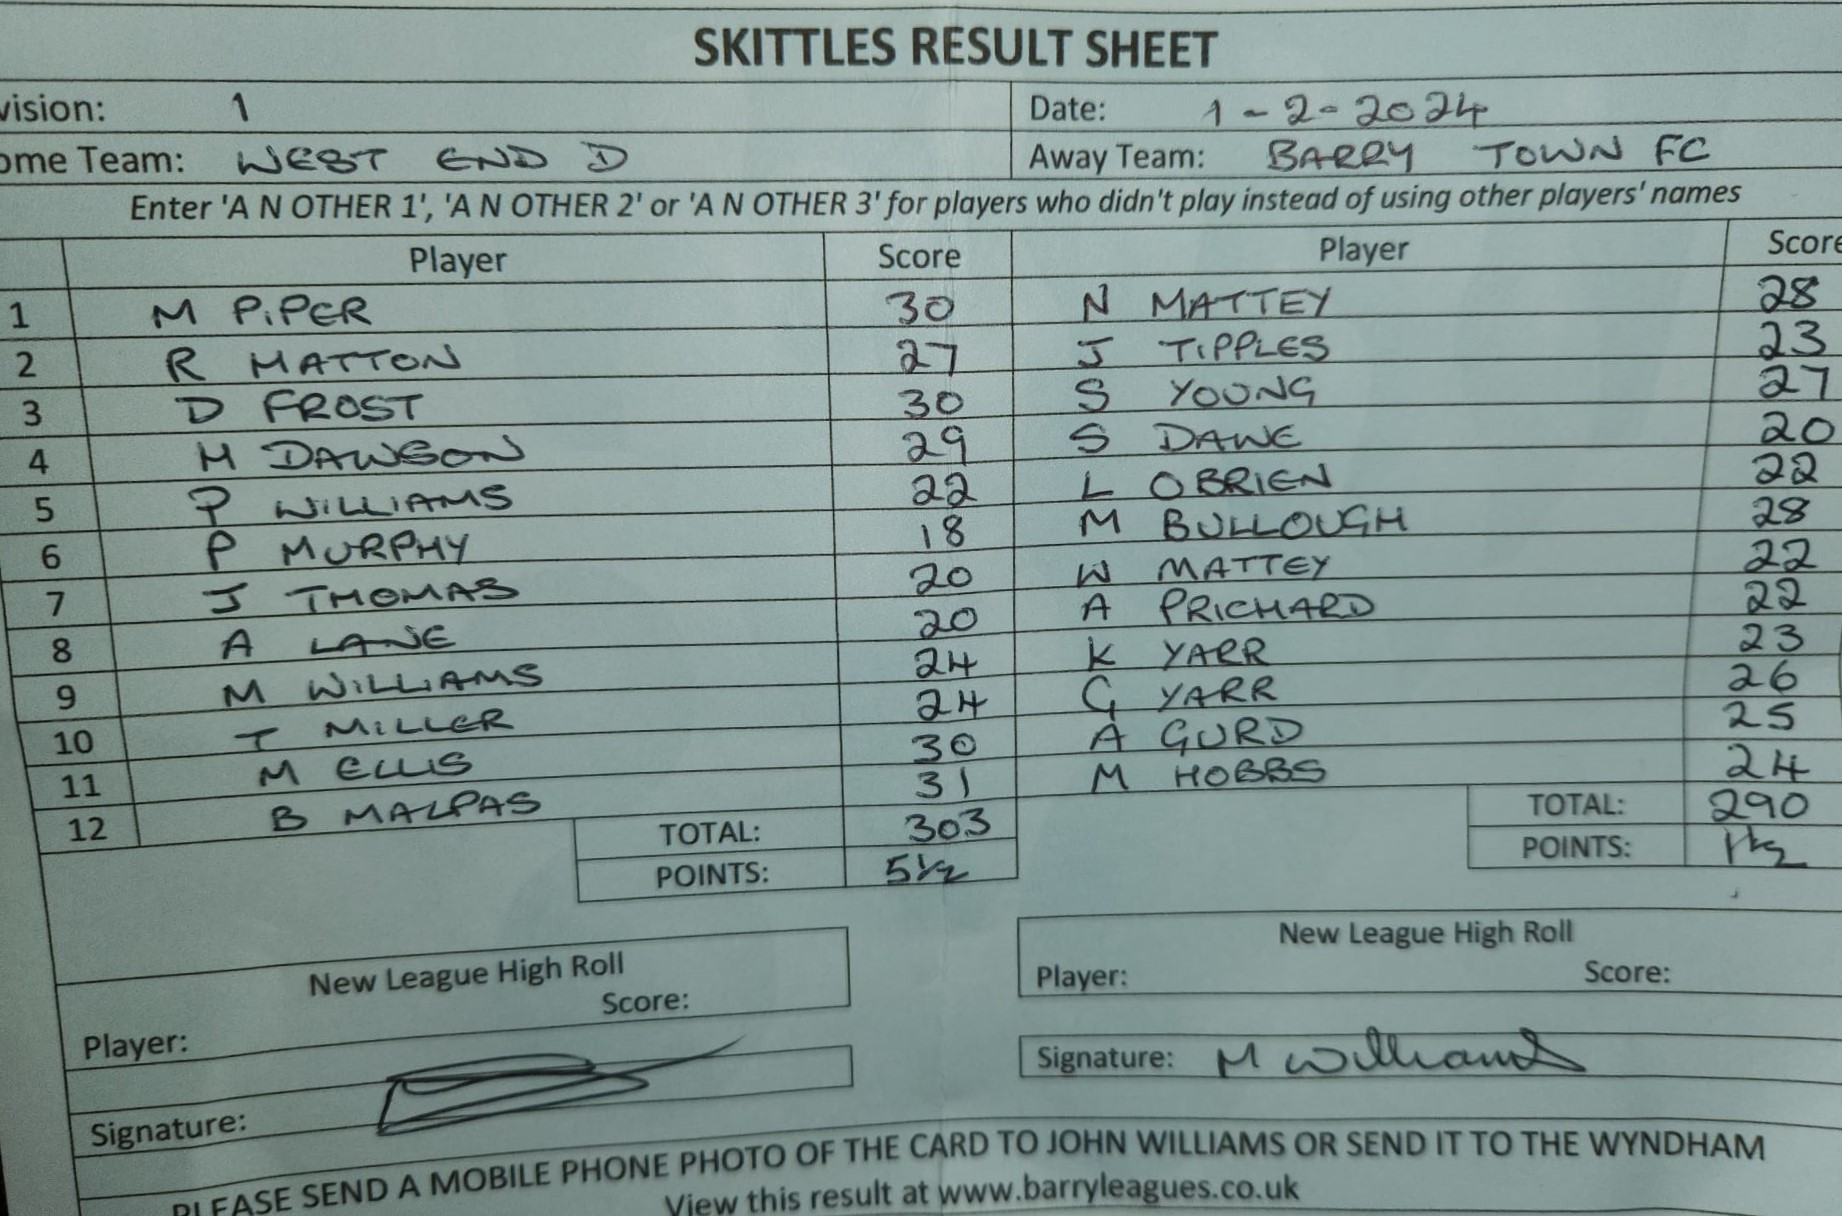 SKITTLES RESULT SHEET
vision: 1 Date: 1-2-2024
ome Team: WEST END D Away Team: BARRY TOWN FC
Enter 'A N OTHER 1', 'A N OTHER 2' or 'A N OTHER 3' for players who didn't play instead of using other players' names
Player Score Player Score
1 M PIPER 30 N MATTEY 28
2 R HATTON 27 J TIPPLES 23
3 D FROST 30 S YOUNG 27
4 H DAWSON 29 S DAWE 20
5 P WILLIAMS 22 L OBRIEN 22
6 P MURPHY 18 M BULLOUGH 28
7 J THOMAS 20 W MATTEY 22
8 A LANE 20 A PRICHARD 22
9 M WILLIAMS 24 K YARR 23
10 T MILLER 24 G YARR 26
11 M ELLIS 30 A GURD 25
12 B MALPAS 31 M HOBBS 24
TOTAL: 303 TOTAL: 290
POINTS: 5½ POINTS: 1½
New League High Roll New League High Roll
Player: Score: Player: Score:
Signature: Signature: M Williams
PLEASE SEND A MOBILE PHONE PHOTO OF THE CARD TO JOHN WILLIAMS OR SEND IT TO THE WYNDHAM
View this result at www.barryleagues.co.uk